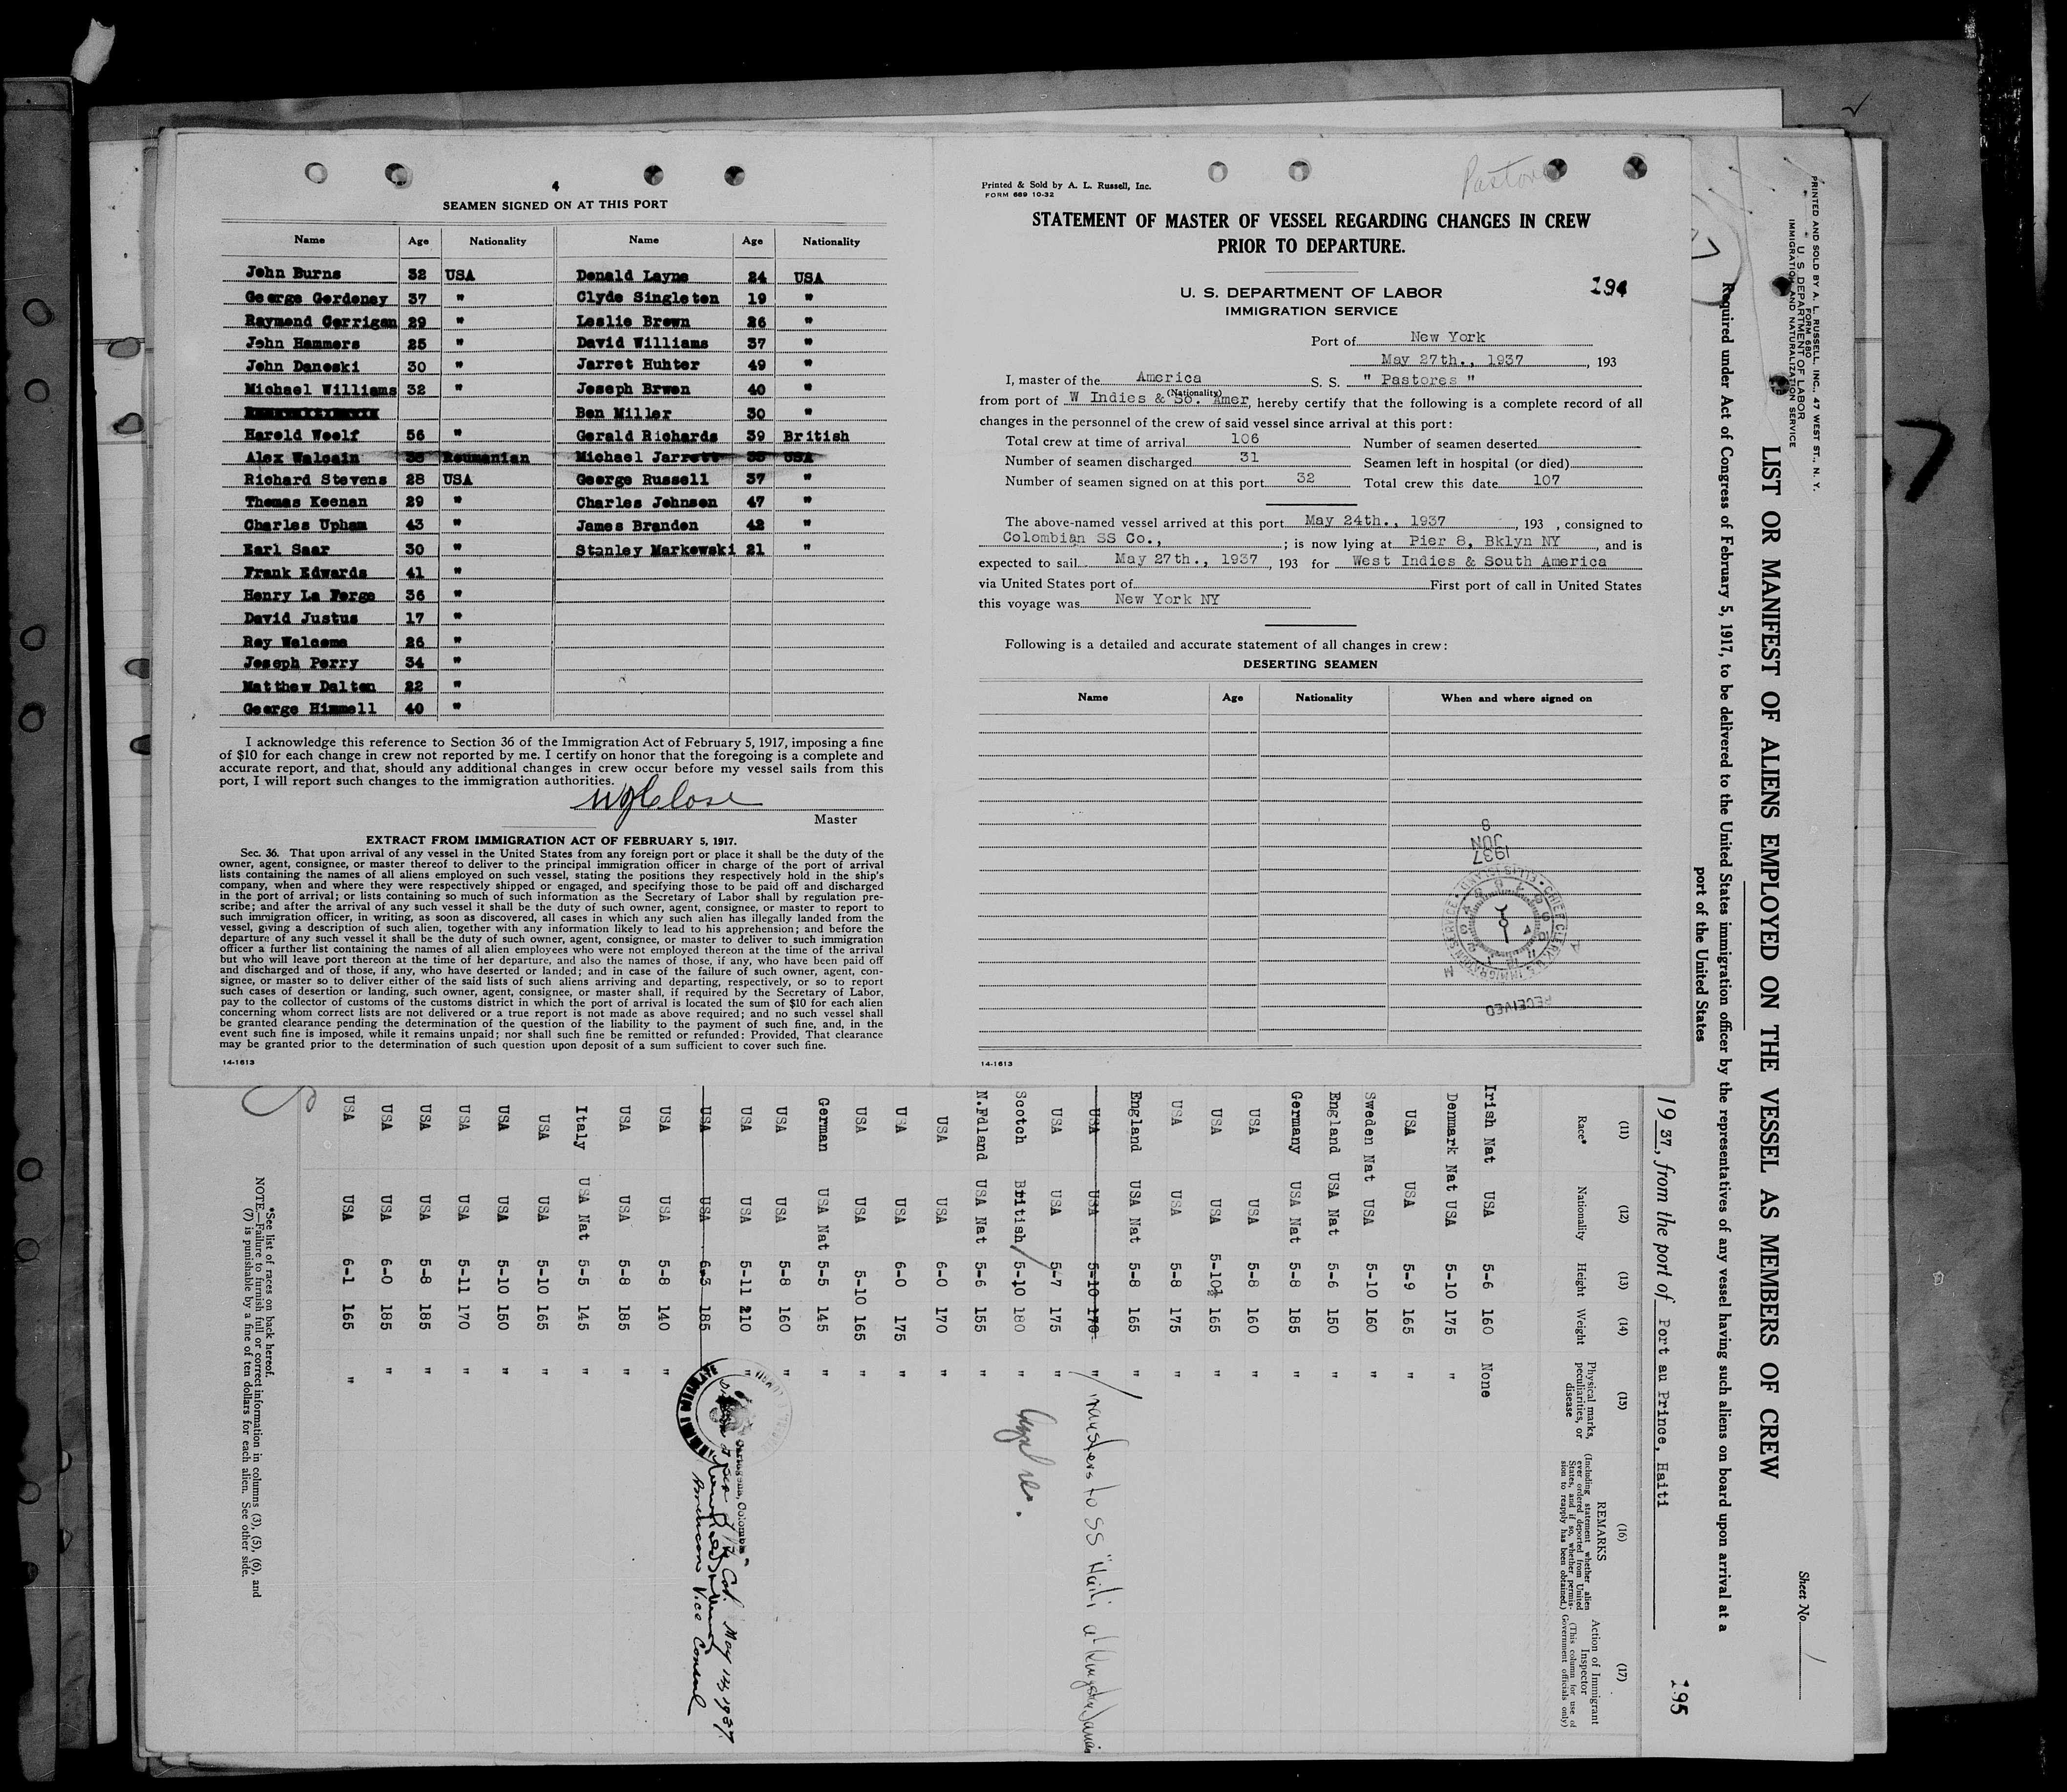 4
SEAMEN SIGNED ON AT THIS PORT
Name Age Nationality Name Age Nationality
John Burns 32 USA Donald Layne 24 USA
George Gordeney 37 " Clyde Singleton 19 "
Raymond Gorrigan 29 " Leslie Brown 26 "
John Hammers 25 " David Williams 37 "
John Daneski 30 " Jarret Huhter 49 "
Michael Williams 32 " Joseph Brwen 40 "
Ben Miller 30 "
Harold Woolf 56 " Gerald Richards 39 British
Alex Walcain Roumanian Michael Jarrett USA
Richard Stevens 28 USA George Russell 37 "
Thomas Keenan 29 " Charles Johnson 47 "
Charles Upham 43 " James Branden 42 "
Earl Saar 30 " Stanley Markowski 21 "
Frank Edwards 41 "
Henry La Forge 36 "
David Justus 17 "
Roy Welcome 26 "
Joseph Perry 34 "
Matthew Dalton 22 "
George Himmell 40 "
I acknowledge this reference to Section 36 of the Immigration Act of February 5, 1917, imposing a fine
of $10 for each change in crew not reported by me. I certify on honor that the foregoing is a complete and
accurate report, and that, should any additional changes in crew occur before my vessel sails from this
port, I will report such changes to the immigration authorities.
Close
Master
EXTRACT FROM IMMIGRATION ACT OF FEBRUARY 5, 1917.
Sec. 36. That upon arrival of any vessel in the United States from any foreign port or place it shall be the duty of the
owner, agent, consignee, or master thereof to deliver to the principal immigration officer in charge of the port of arrival
lists containing the names of all aliens employed on such vessel, stating the positions they respectively hold in the ship's
company, when and where they were respectively shipped or engaged, and specifying those to be paid off and discharged
in the port of arrival; or lists containing so much of such information as the Secretary of Labor shall by regulation pre-
scribe; and after the arrival of any such vessel it shall be the duty of such owner, agent, consignee, or master to report to
such immigration officer, in writing, as soon as discovered, all cases in which any such alien has illegally landed from the
vessel, giving a description of such alien, together with any information likely to lead to his apprehension; and before the
departure of any such vessel it shall be the duty of such owner, agent, consignee, or master to deliver to such immigration
officer a further list containing the names of all alien employees who were not employed thereon at the time of the arrival
but who will leave port thereon at the time of her departure, and also the names of those, if any, who have been paid off
and discharged and of those, if any, who have deserted or landed; and in case of the failure of such owner, agent, con-
signee, or master so to deliver either of the said lists of such aliens arriving and departing, respectively, or so to report
such cases of desertion or landing, such owner, agent, consignee, or master shall, if required by the Secretary of Labor,
pay to the collector of customs of the customs district in which the port of arrival is located the sum of $10 for each alien
concerning whom correct lists are not delivered or a true report is not made as above required; and no such vessel shall
be granted clearance pending the determination of the question of the liability to the payment of such fine, and, in the
event such fine is imposed, while it remains unpaid; nor shall such fine be remitted or refunded: Provided, That clearance
may be granted prior to the determination of such question upon deposit of a sum sufficient to cover such fine.
14-1613
Pastores
Printed & Sold by A. L. Russell, Inc.
FORM 689 10-32
STATEMENT OF MASTER OF VESSEL REGARDING CHANGES IN CREW
PRIOR TO DEPARTURE.
194
U. S. DEPARTMENT OF LABOR
IMMIGRATION SERVICE
Port of New York
May 27th., 1937, 193
I, master of the America S. S. " Pastores "
(Nationality)
from port of W Indies & So. Amer, hereby certify that the following is a complete record of all
changes in the personnel of the crew of said vessel since arrival at this port:
Total crew at time of arrival 106 Number of seamen deserted
Number of seamen discharged 31 Seamen left in hospital (or died)
Number of seamen signed on at this port 32 Total crew this date 107
The above-named vessel arrived at this port May 24th., 1937, 193 , consigned to
Colombian SS Co., ; is now lying at Pier 8, Bklyn NY, and is
expected to sail May 27th., 1937, 193 for West Indies & South America
via United States port of First port of call in United States
this voyage was New York NY
Following is a detailed and accurate statement of all changes in crew:
DESERTING SEAMEN
Name Age Nationality When and where signed on
1937
JUN
8
RECEIVED
CHIEF CLERK U.S. IMMIGRATION SERVICE ELLIS ISLAND
14-1613
PRINTED AND SOLD BY A. L. RUSSELL, INC., 47 WEST ST., N. Y.
FORM 680
U. S. DEPARTMENT OF LABOR
IMMIGRATION AND NATURALIZATION SERVICE
Sheet No.
LIST OR MANIFEST OF ALIENS EMPLOYED ON THE VESSEL AS MEMBERS OF CREW
Required under Act of Congress of February 5, 1917, to be delivered to the United States immigration officer by the representatives of any vessel having such aliens on board upon arrival at a
port of the United States
1937, from the port of Port au Prince, Haiti
195
(11) (12) (13) (14) (15) (16) (17)
Race* Nationality Height Weight Physical marks, peculiarities, or disease
REMARKS
(Including statement whether alien ever ordered deported from United States, and if so, whether permission to reapply has been obtained.)
Action of Immigrant Inspector
(This column for use of Government officials only)
Irish Nat USA 5-6 160 None
Denmark Nat USA 5-10 175 "
USA USA 5-9 165 "
Sweden Nat USA 5-10 160 "
England USA Nat 5-6 150 "
Germany USA Nat 5-8 185 "
USA USA 5-8 160 "
USA USA 5-10½ 165 "
USA USA 5-8 175 "
England USA Nat 5-8 165 "
USA USA 5-10 170 " Transfers to SS "Haiti" at Kingston Jamaica
USA USA 5-7 175 "
Scotch British 5-10 180 "
N.Fdland USA Nat 5-6 155 "
USA USA 6-0 170 "
USA USA 6-0 175 "
USA USA 5-10 165 "
German USA Nat 5-5 145 "
USA USA 5-8 160 "
USA USA 5-11 210 "
USA USA 6-3 185 "
USA USA 5-8 140 "
USA USA 5-8 185 "
Italy USA Nat 5-5 145 "
USA USA 5-10 165 "
USA USA 5-10 150 "
USA USA 5-11 170 "
USA USA 5-8 185 "
USA USA 6-0 185 "
USA USA 6-1 165 "
Cartagena, Colombia
May 14, 1937
American Vice Consul
*See list of races on back hereof.
NOTE.—Failure to furnish full or correct information in columns (3), (5), (6), and
(7) is punishable by a fine of ten dollars for each alien. See other side.